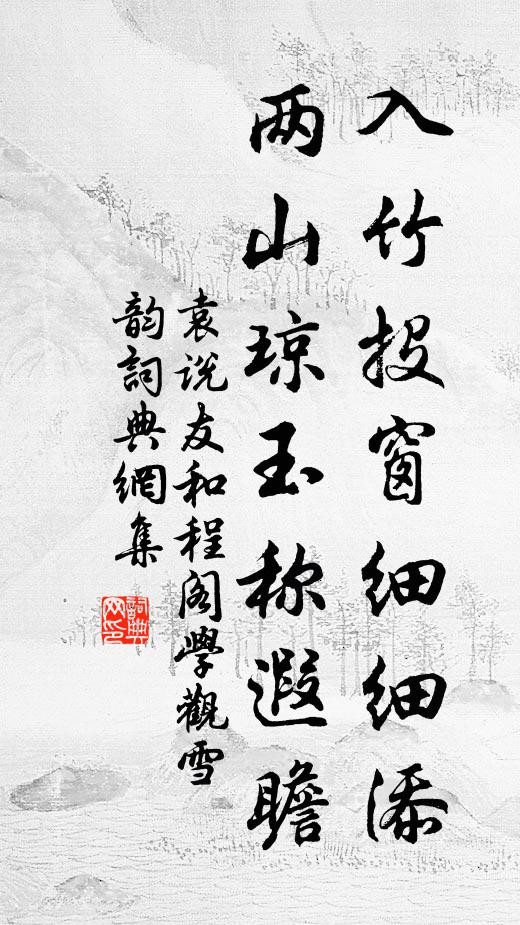 入竹投窗细细添
两山琼玉称遐瞻
袁说友和程阁學觀雪
韵詞典網集
詞典网印